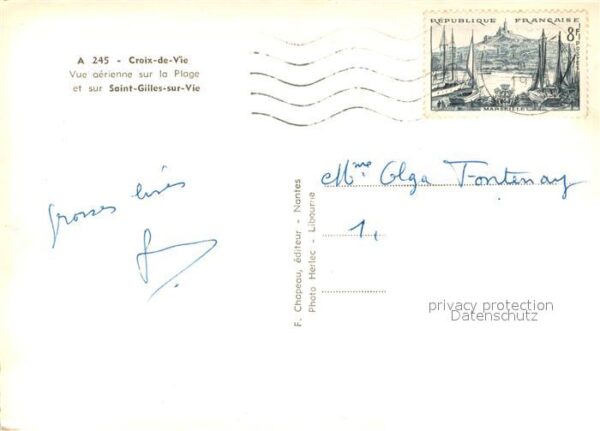 A 245 - Croix-de-Vie
Vue aérienne sur la Plage
et sur Saint-Gilles-sur-Vie
RÉPUBLIQUE FRANÇAISE
8F
POSTES
MARSEILLE
19
Mme Olga Fontenay
1,
grosses bises
F. Chapeau, éditeur - Nantes
Photo Herlec - Libourne
privacy protection
Datenschutz